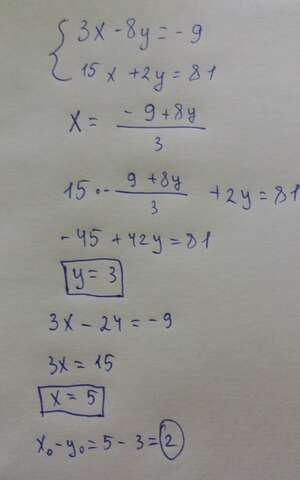 { 3x - 8y = - 9
15x + 2y = 81
x = (- 9 + 8y)/3
15 · - (9 + 8y)/3 + 2y = 81
- 45 + 42y = 81
y = 3
3x - 24 = - 9
3x = 15
x = 5
x₀ - y₀ = 5 - 3 = 2